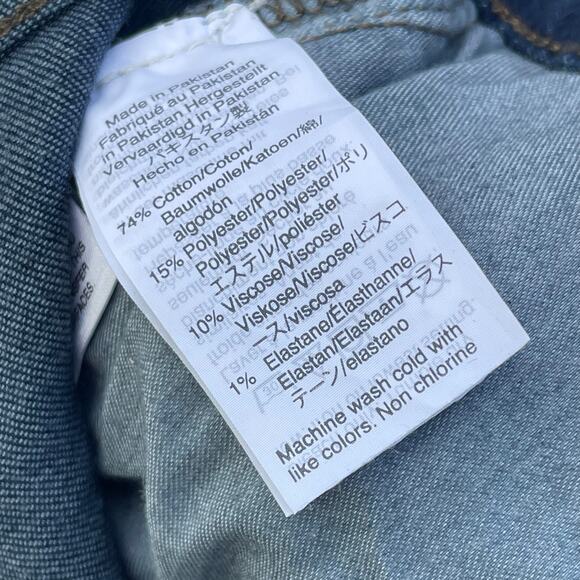 Made in Pakistan
Fabriqué au Pakistan
in Pakistan Hergestellt
Vervaardigd in Pakistan
パキスタン製
Hecho en Pakistán
74% Cotton/Coton/
Baumwolle/Katoen/綿/
algodón
15% Polyester/Polyester/
Polyester/Polyester/ポリ
エステル/poliéster
10% Viscose/Viscose/
Viskose/Viscose/ビスコ
ース/viscosa
1% Elastane/Élasthanne/
Elastan/Elastaan/エラス
テーン/elastano
Machine wash cold with
like colors. Non chlorine